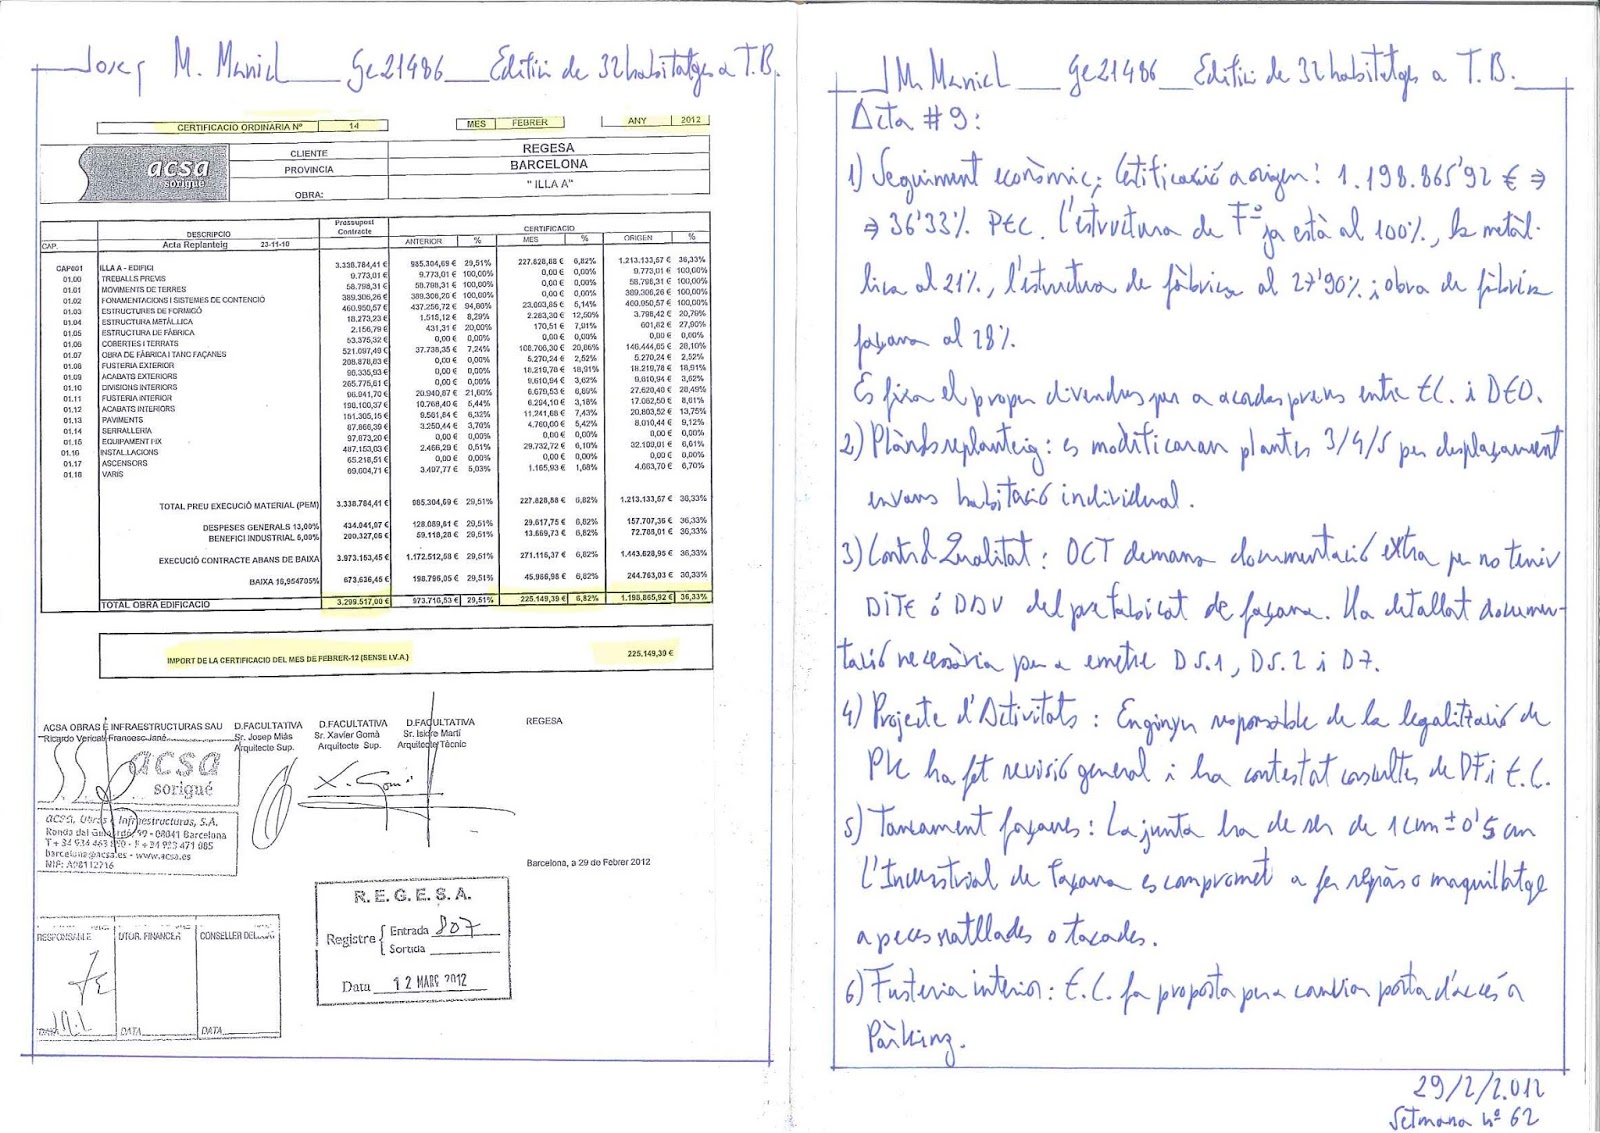 Josep M. Muniel Ge21486 Edifici de 32 habitatges a T.B.
CERTIFICACIO ORDINÀRIA Nº 14 MES FEBRER ANY 2012
acsa
sorigué
CLIENTE REGESA
PROVINCIA BARCELONA
OBRA: "ILLA A"
CAP. DESCRIPCIO Pressupost Contracte CERTIFICACIO
Acta Replanteig 23-11-10 ANTERIOR % MES % ORIGEN %
CAP001 ILLA A - EDIFICI 3.338.784,41 € 985.304,69 € 29,51% 227.828,88 € 6,82% 1.213.133,57 € 36,33%
01.00 TREBALLS PREVIS 9.773,01 € 9.773,01 € 100,00% 0,00 € 0,00% 9.773,01 € 100,00%
01.01 MOVIMENTS DE TERRES 58.798,31 € 58.798,31 € 100,00% 0,00 € 0,00% 58.798,31 € 100,00%
01.02 FONAMENTACIONS I SISTEMES DE CONTENCIÓ 389.306,26 € 389.306,26 € 100,00% 0,00 € 0,00% 389.306,26 € 100,00%
01.03 ESTRUCTURES DE FORMIGÓ 460.950,57 € 437.256,72 € 94,86% 23.003,85 € 5,14% 460.950,57 € 100,00%
01.04 ESTRUCTURA METÀL.LICA 18.273,23 € 1.515,12 € 8,29% 2.283,30 € 12,50% 3.798,42 € 20,79%
01.05 ESTRUCTURA DE FÀBRICA 2.156,79 € 431,31 € 20,00% 170,51 € 7,91% 601,82 € 27,90%
01.06 COBERTES I TERRATS 53.375,32 € 0,00 € 0,00% 0,00 € 0,00% 0,00 € 0,00%
01.07 OBRA DE FÀBRICA I TANC FAÇANES 521.097,49 € 37.738,35 € 7,24% 108.706,30 € 20,86% 146.444,65 € 28,10%
01.08 FUSTERIA EXTERIOR 208.878,83 € 0,00 € 0,00% 5.270,24 € 2,52% 5.270,24 € 2,52%
01.09 ACABATS EXTERIORS 96.335,93 € 0,00 € 0,00% 18.219,78 € 18,91% 18.219,78 € 18,91%
01.10 DIVISIONS INTERIORS 265.775,61 € 0,00 € 0,00% 9.610,94 € 3,62% 9.610,94 € 3,62%
01.11 FUSTERIA INTERIOR 96.941,70 € 20.940,87 € 21,60% 6.679,53 € 6,89% 27.620,40 € 28,49%
01.12 ACABATS INTERIORS 198.100,37 € 10.768,40 € 5,44% 6.294,10 € 3,18% 17.062,50 € 8,61%
01.13 PAVIMENTS 151.305,15 € 9.561,84 € 6,32% 11.241,68 € 7,43% 20.803,52 € 13,75%
01.14 SERRALLERIA 87.866,39 € 3.250,44 € 3,70% 4.760,00 € 5,42% 8.010,44 € 9,12%
01.15 EQUIPAMENT FIX 97.873,20 € 0,00 € 0,00% 0,00 € 0,00% 0,00 € 0,00%
01.16 INSTALLACIONS 487.153,03 € 2.466,29 € 0,51% 29.732,72 € 6,10% 6,61%
01.17 ASCENSORS 65.218,51 € 0,00 € 0,00% 0,00 € 0,00% 0,00 € 0,00%
01.18 VARIS 69.604,71 € 3.497,77 € 5,03% 1.165,93 € 1,68% 4.663,70 € 6,70%
TOTAL PREU EXECUCIÓ MATERIAL (PEM) 3.338.784,41 € 985.304,69 € 29,51% 227.828,88 € 6,82% 1.213.133,57 € 36,33%
DESPESES GENERALS 13,00% 434.041,97 € 128.089,61 € 29,51% 29.617,75 € 6,82% 157.707,36 € 36,33%
BENEFICI INDUSTRIAL 6,00% 200.327,06 € 59.118,28 € 29,51% 13.669,73 € 6,82% 72.788,01 € 36,33%
EXECUCIÓ CONTRACTE ABANS DE BAIXA 3.973.153,45 € 1.172.512,58 € 29,51% 271.116,37 € 6,82% 1.443.628,95 € 36,33%
BAIXA 16,954705% 673.636,45 € 198.796,05 € 29,51% 45.966,98 € 6,82% 244.763,03 € 36,33%
TOTAL OBRA EDIFICACIO 3.299.517,00 € 973.716,53 € 29,51% 225.149,39 € 6,82% 1.198.865,92 € 36,33%
IMPORT DE LA CERTIFICACIO DEL MES DE FEBRER-12 (SENSE I.V.A.) 225.149,39 €
ACSA OBRAS E INFRAESTRUCTURAS SAU D.FACULTATIVA D.FACULTATIVA D.FACULTATIVA REGESA
Ricardo Vericat Francesc Jané Sr. Josep Miàs Sr. Xavier Gomà Sr. Isidre Martí
Arquitecte Sup. Arquitecte Sup. Arquitecte Tècnic
acsa
sorigué
X. Gomà
acsa, Obras e Infraestructuras, S.A.
Ronda del Guinardó, 99 - 08041 Barcelona
barcelona@acsa.es - www.acsa.es
NIF: A08112716
Barcelona, a 29 de Febrer 2012
R.E.G.E.S.A.
Registre Entrada 807
Sortida
Data 12 MARÇ 2012
RESPONSABLE DTOR. FINANCER CONSELLER DELEG.
DATA DATA DATA
JM. Muniel Ge21486 Edifici de 32 habitatges a T.B.
Acta #9:
1) Seguiment econòmic; Certificació a origen: 1.198.865'92 € ⇒
⇒ 36'33% PEC. L'estructura de Fº ja està al 100%, la metàl·
lica al 21%, l'estructura de fàbrica al 27'90% i obra de fàbrica
façana al 28%.
Es fixa el proper divendres per a acordar preus entre E.C. i DEO.
2) Plànols replanteig: es modificaran plantes 3/4/5 per desplaçament
envans habitació individual.
3) Control Qualitat: OCT demana documentació extra per no tenir
DITE ó DAU del prefabricat de façana. Ha detallat documen-
tació necessària per a emetre D5.1, D5.2 i D7.
4) Projecte d'Activitats: Enginyer responsable de la legalització de
PK ha fet revisió general i ha contestat consultes de DF i E.C.
5) Tancament façanes: La junta ha de ser de 1cm ± 0'5 cm
L'Industrial de façana es compromet a fer repàs o maquillatge
a peces ratllades o tacades.
6) Fusteria interior: E.C. fa proposta per a canviar porta d'accés a
Pàrking.
29/2/2.012
Setmana nº 62